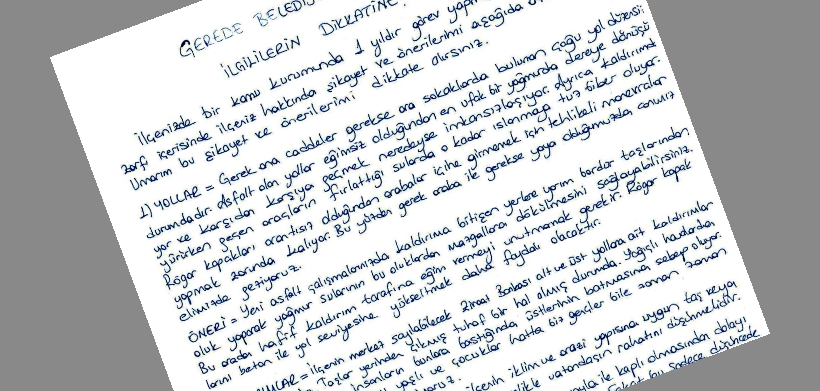 GEREDE BELEDİ
İLGİLİLERİN DİKKATİNE
İlçenizde bir kamu kurumunda 1 yıldır görev yapm
zarf içerisinde ilçeniz hakkında şikayet ve önerilerimi aşağıda
Umarım bu şikayet ve önerilerimi dikkate alırsınız.
1) YOLLAR = Gerek ana caddeler gerekse ara sokaklarda bulunan çoğu yol düzensiz
durumdadır. Asfalt olan yollar eğimsiz olduğundan en ufak bir yağmurda dereye dönüşü
yor ve karşıdan karşıya geçmek neredeyse imkansızlaşıyor. Ayrıca kaldırımda
yürürken geçen araçların fırlattığı sularda o kadar ıslanmaya tuz biber oluyor.
Rögar kapakları orantısız olduğundan arabalar içine girmemek için tehlikeli manevralar
yapmak zorunda kalıyor. Bu yüzden gerek araba ile gerekse yaya olduğumuzda canımız
elimizde geziyoruz.
ÖNERİ = Yeni asfalt çalışmalarınızda kaldırıma bitişen yerlere yarım bordür taşlarından
oluk yaparak yağmur sularının bu oluklardan mazgallara dökülmesini sağlayabilirsiniz.
Bu arada hafif kaldırım tarafına eğim vermeyi unutmamak gerekir. Rögar kapak
larını beton ile yol seviyesine yükseltmek daha faydalı olacaktır.
ilçenin merkezi sayılabilecek Ziraat Bankası alt ve üst yollara ait kaldırımlar
Taşlar yerinden çıkmış tuhaf bir hal almış durumda. Yağışlı havalarda
insanların bunlara bastığında üstlerinin batmasına sebep oluyor.
yaşlı ve çocuklar hatta biz gençler bile zaman zaman
ilçenin iklim ve arazi yapısına uygun taş veya
likle vatandaşın rahatını düşünmelidir.
ile kaplı olmasından dolayı
bu sadece düşüncede